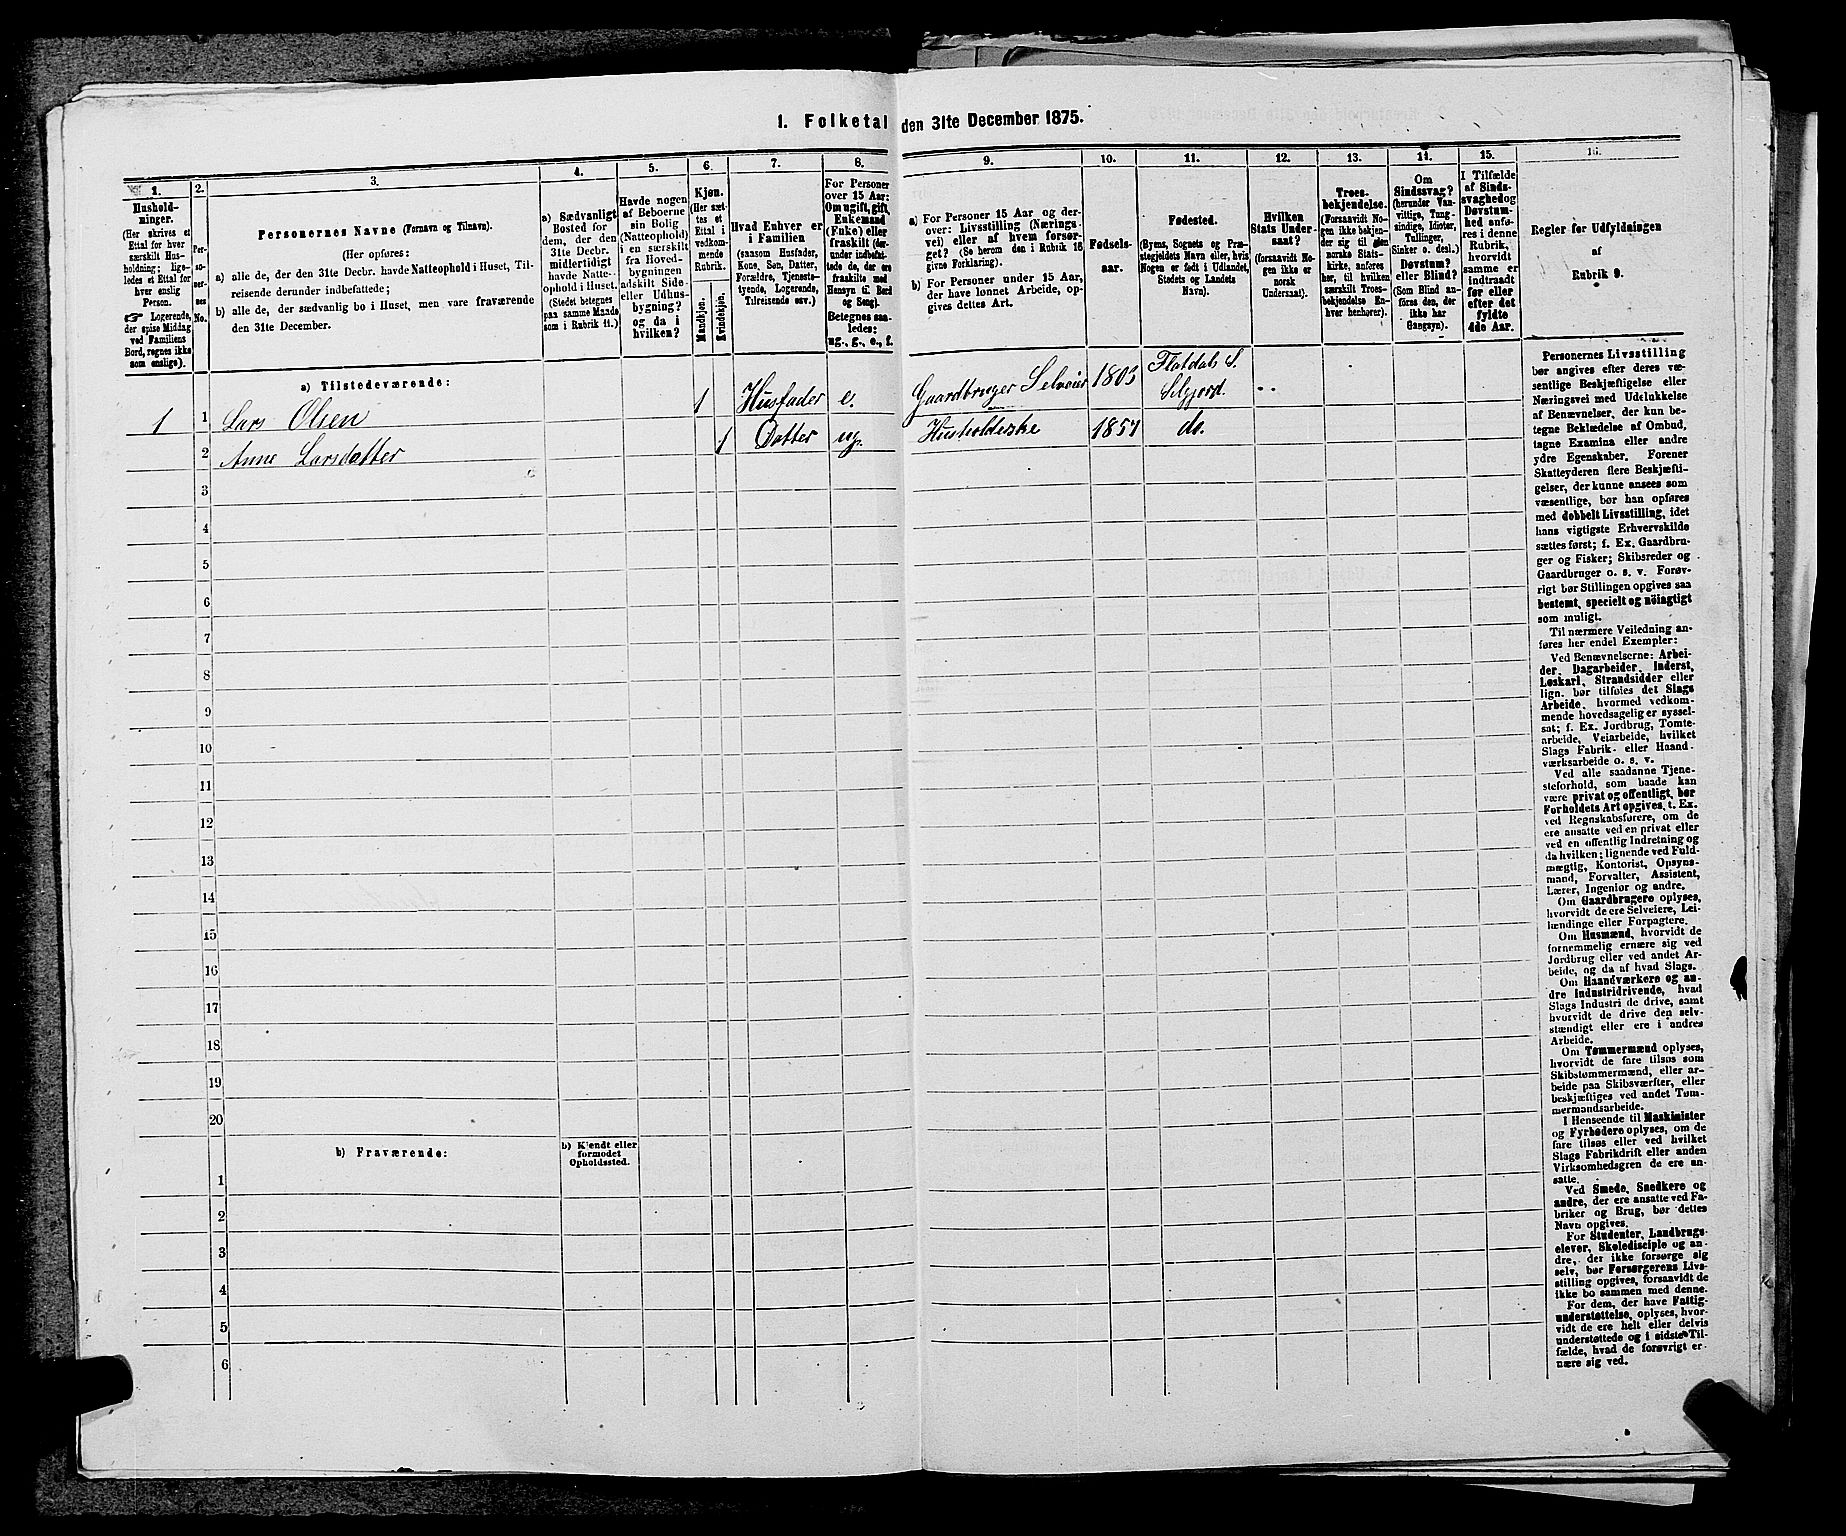 1. Folketal den 31te December 1875.
1.
Hushold-
ninger.
(Her skrives et
Ettal for hver
særskilt Hus-
holdning; lige-
ledes et Ettal for
hver enslig
Person.
☞ Logerende,
der spise Middag
ved Familiens
Bord, regnes ikke
som enslige).
2.
Per-
so-
ner-
nes
No.
3.
Personernes Navne (Fornavn og Tilnavn).
(Her opføres:
a) alle de, der den 31te Decbr. havde Natteophold i Huset, Til-
reisende derunder indbefattede;
b) alle de, der sædvanlig bo i Huset, men vare fraværende
den 31te December.
4.
a) Sædvanligt
Bosted for
dem, der den
31te Decbr.
midlertidigt
havde Natte-
ophold i Huset.
(Stedet betegnes
paa samme Maade
som i Rubrik 11.)
5.
Havde nogen
af Beboerne
sin Bolig
(Natteophold)
i en særskilt
fra Hoved-
bygningen
adskilt Side-
eller Udhus-
bygning?
og da i
hvilken?
6.
Kjøn.
(Her sæt-
tes et
Ettal i
vedkom-
mende
Rubrik.
Mandkjøn.
Kvindekjøn.
7.
Hvad Enhver er
i Familien
(saasom Husfader,
Kone, Søn, Datter,
Forældre, Tjeneste-
tyende, Logerende,
Tilreisende osv.)
8.
For Personer
over 15 Aar:
Om ugift, gift,
Enkemand
(Enke) eller
fraskilt (der-
under indbefat-
tede de, der ere
fraskilte med
Hensyn til Bord
og Seng).
Betegnes saa-
ledes:
ug., g., e., f.
9.
a) For Personer 15 Aar og der-
over: Livsstilling (Nærings-
vei) eller af hvem forsør-
get? (Se herom den i Rubrik 16
givne Forklaring).
b) For Personer under 15 Aar,
der have lønnet Arbeide, op-
gives dettes Art.
10.
Fødsels-
aar.
11.
Fødested.
(Byens, Sognets og Præ-
stegjeldets Navn eller, hvis
Nogen er født i Udlandet,
Stedets og Landets
Navn).
12.
Hvilken
Stats Under-
saat?
(forsaavidt No-
gen ikke er
norsk
Undersaat).
13.
Troes-
bekjendelse.
(Forsaavidt No-
gen ikke bekjen-
der sig til den
norske Stats-
kirke, anføres
her, til hvilken
særskilt Troes-
bekjendelse En-
hver henhører).
14.
Om
Sindssvag?
(herunder Van-
vittige, Tung-
sindige, Idioter,
Tullinger,
Sinker o. desl.)
Døvstum?
eller Blind?
(Som Blind an-
føres den, der
ikke har
Gangsyn).
15.
I Tilfælde
af Sinds-
svaghed og
Døvstum-
hed anfø-
res i denne
Rubrik,
hvorvidt
samme er
indtraadt
før eller
efter det
fyldte
4de Aar.
16.
Regler for Udfyldningen
af
Rubrik 9.
a) Tilstedeværende:
1 1 Lars Olsen 1 Husfader e. Gaardbruger Selveier 1803 Flatdals S. Selgjord. ..
2 Anne Larsdatter 1 Datter ug. Husholderske 1857 do.
3
4
5
6
7
8
9
10
11
12
13
14
15
16
17
18
19
20
b) Fraværende:
b) Kjendt eller
formodet
Opholdssted.
1
2
3
4
5
6
Personernes Livsstilling
bør angives efter deres væ-
sentlige Beskjæftigelse eller
Næringsvei med Udelukkelse
af Benævnelser, der kun be-
tegne Beklædelse af Ombud,
tagne Examina eller andre
ydre Egenskaber. Forener
Skatteyderen flere Beskjæfti-
gelser, der kunne ansees som
væsentlige, bør han opføres
med dobbelt Livsstilling, idet
hans vigtigste Erhvervskilde
sættes først; f. Ex. Gaardbru-
ger og Fisker; Skibsreder og
Gaardbruger o. s. v. Forøv-
rigt bør Stillingen opgives saa
bestemt, specielt og nöiagtigt
som muligt.
Til nærmere Veiledning an-
føres her endel Exempler:
Ved Benævnelserne: Arbei-
der, Dagarbeider, Inderst,
Løskarl, Strandsidder eller
lign. bør tilføies det Slags
Arbeide, hvormed vedkom-
mende hovedsagelig er syssel-
sat; f. Ex. Jordbrug, Tomte-
arbeide, Veiarbeide, hvilket
Slags Fabrik- eller Haand-
værksarbeide o. s. v.
Ved alle saadanne Tjene-
steforhold, som baade kan
være privat og offentligt, bør
Forholdets Art opgives, t. Ex.
ved Regnskabsførere, om de
ere ansatte ved en privat eller
ved en offentlig Indretning og
da hvilken; lignende ved Fuld-
mægtig, Kontorist, Opsyns-
mand, Forvalter, Assistent,
Lærer, Ingeniør og andre.
Om Gaardbrugere oplyses,
hvorvidt de ere Selveiere, Lei-
lændinge eller Forpagtere.
Om Husmænd, hvorvidt de
fornemmelig ernære sig ved
Jordbrug eller ved andet Ar-
beide, og da af hvad Slags.
Om Haandværkere og an-
dre Industridrivende, hvad
Slags Industri de drive, samt
hvorvidt de drive den selv-
stændigt eller ere i andres
Arbeide.
Om Tømmermænd oplyses,
hvorvidt de fare tilsøs som
Skibstømmermænd, eller ar-
beide paa Skibsværfter, eller
beskjæftiges ved andet Tøm-
mermandsarbeide.
I Henseende til Maskinister
og Fyrbødere oplyses, om de
fare tilsøs eller ved hvilket
Slags Fabrikdrift eller anden
Virksomhedsgren de ere an-
satte.
Ved Smede, Snedkere og
andre, der ere ansatte ved Fa-
briker og Brug, bør dettes
Navn opgives.
For Studenter, Landbrugs-
elever, Skoledisciple og an-
dre, der ikke forsørge sig
selv, bør Forsørgerens Livs-
stilling opgives, forsaavidt de
ikke bo sammen med denne.
For dem, der have Fattig-
understøttelse, oplyses, hvor-
vidt de ere helt eller delvis
understøttede og i sidste Til-
fælde, hvad de forøvrigt er-
nære sig ved.